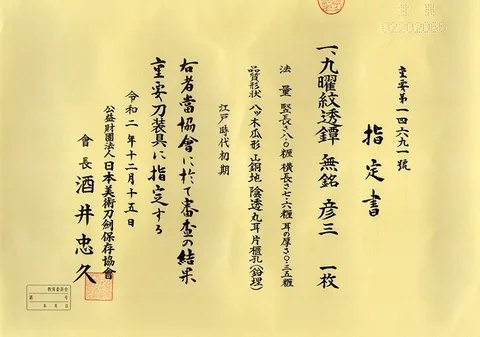 重要第一四六九一號
指定書
一、九曜紋透鐔 無銘 彦三 一枚
法量 竪長さ八・〇糎 横長さ七・六糎 耳の厚さ〇・三五糎
品質形状 八ッ木瓜形 山銅地 陰透 丸耳 片櫃孔(鉛埋)
江戸時代初期
右者當協會に於て審査の結果
重要刀装具に指定する
令和二年十二月十五日
公益財團法人日本美術刀劍保存協會
會長 酒井忠久
第 号
年 月 日